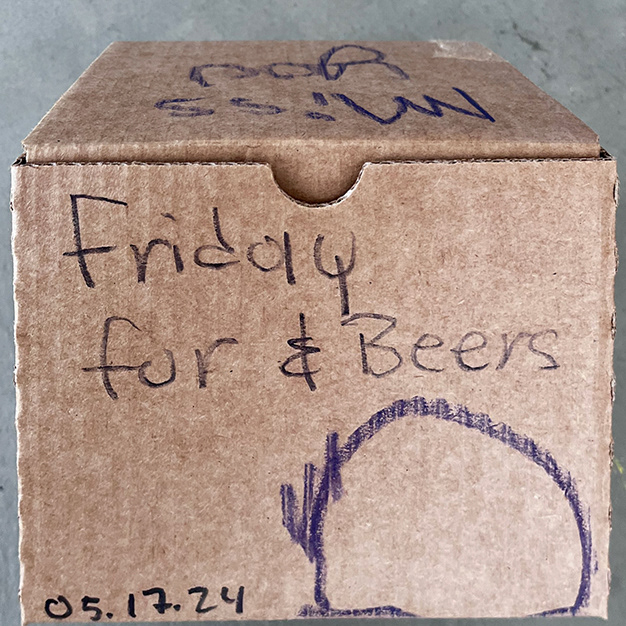 Miss
You
Friday
fur & Beers
05.17.24